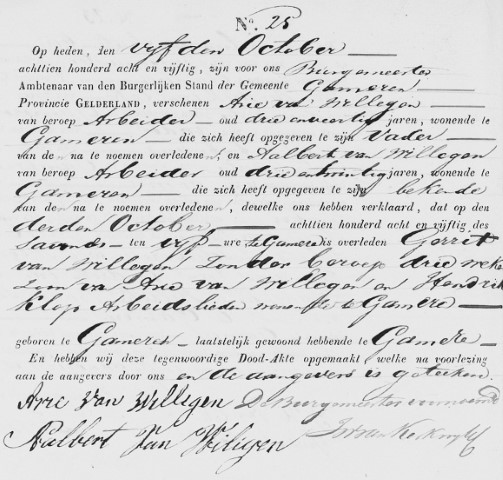 No. 25
Op heden, den vyfden October
achttien honderd acht en vijftig, zijn voor ons Burgemeester
Ambtenaar van den Burgerlijken Stand der Gemeente Gameren
Provincie GELDERLAND, verschenen Arie van Willegen
van beroep Arbeider oud drie en veertig jaren, wonende te
Gameren die zich heeft opgegeven te zijn Vader
van de na te noemen overledene, en Aalbert van Willegen
van beroep Arbeider oud drie en jaren, wonende te
Gameren die zich heeft opgegeven te zijn bekende
van den na te noemen overledene, dewelke ons hebben verklaard, dat op den
derden October achttien honderd acht en vijftig des
savonds ten vyf ure te Gameren is overleden Gerrit
van Willegen Zonder beroep drie weken
Zoon van Arie van Willegen en Hendrik
Klop Arbeidslieden te Gameren
geboren te Gameren laatstelijk gewoond hebbende te Gameren
En hebben wij deze tegenwoordige Dood-Akte opgemaakt welke na voorlezing
aan de aangevers door ons en de aangevers is geteekend
Arie Van Willigen De Burgemeester voornoemd
Aalbert Van Wiligen